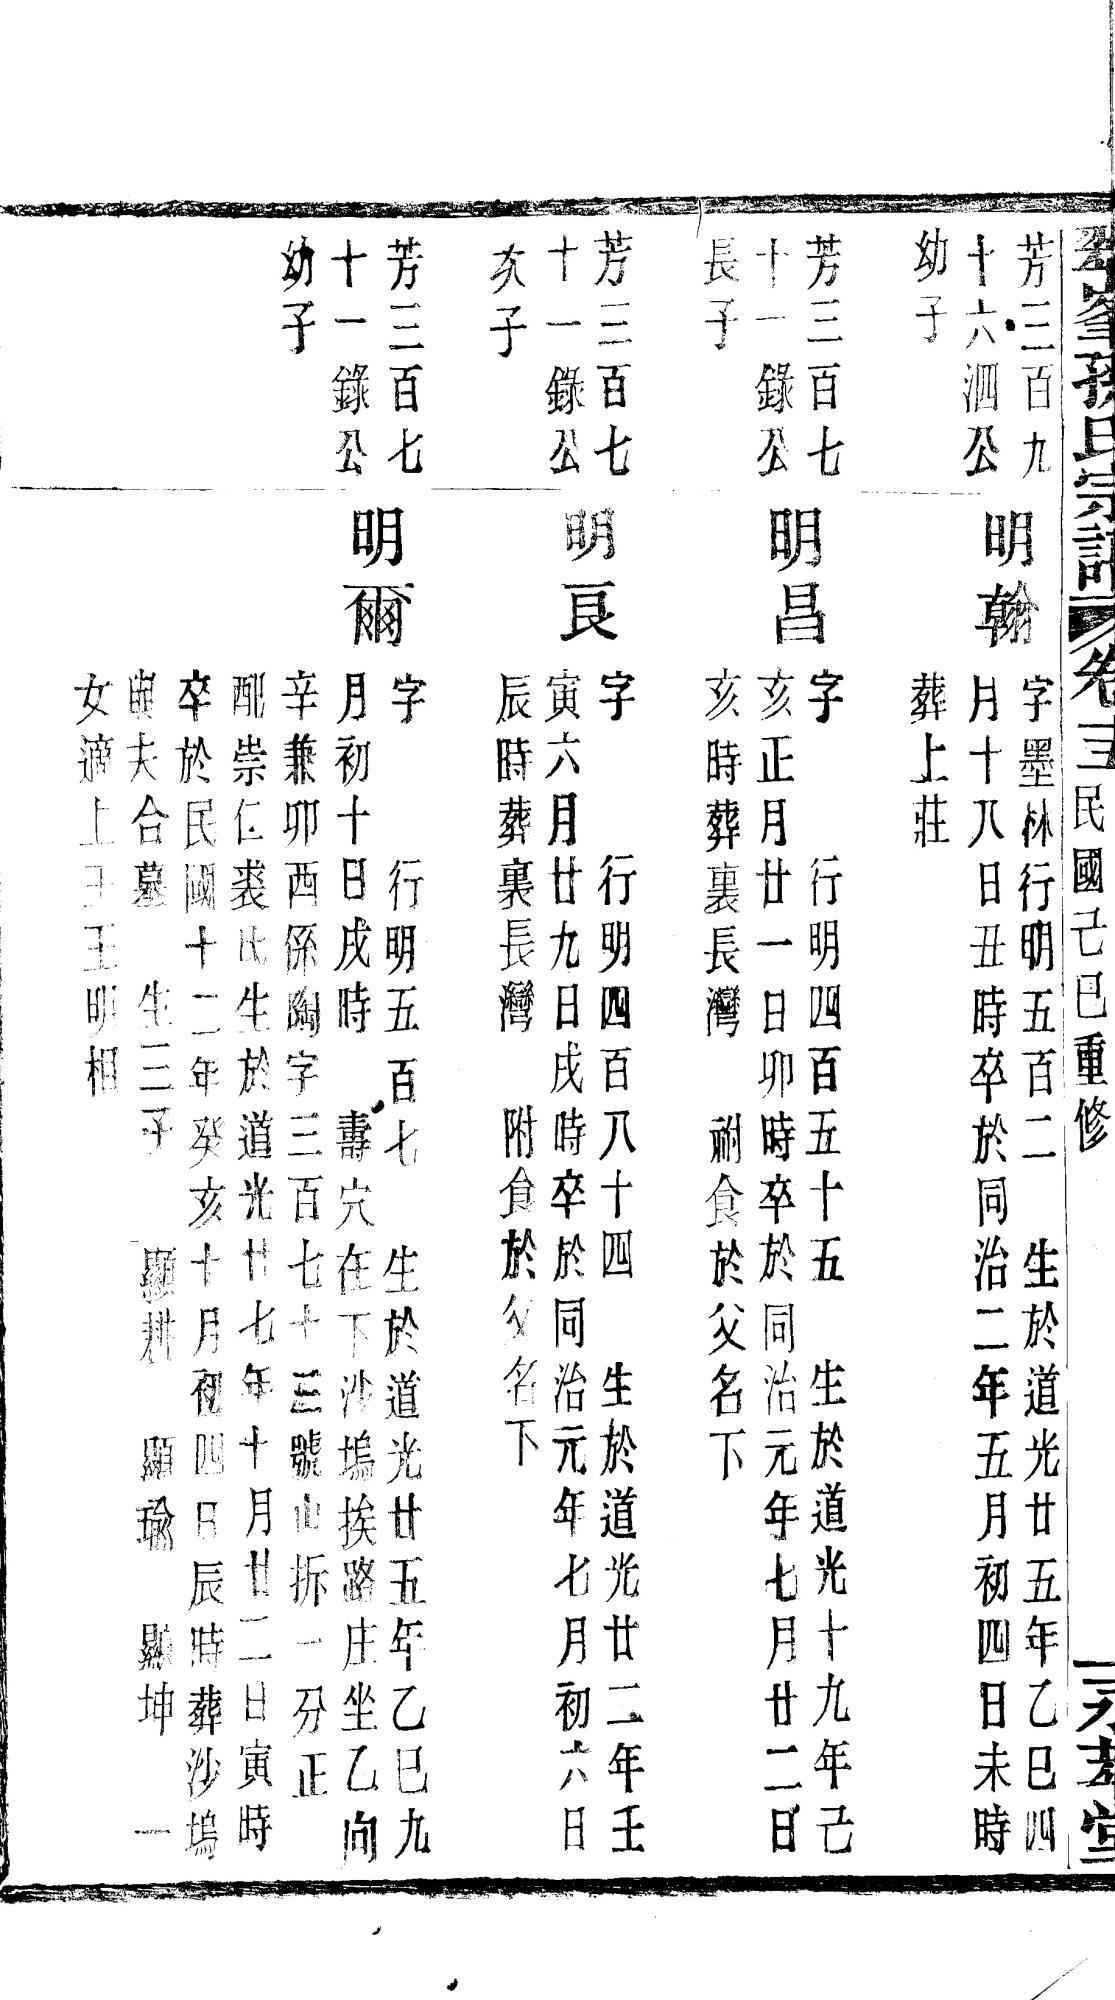 孫氏宗譜 卷三 民國己巳重修
芳三百九
十六泗公
幼子
明翰
字墨林行明五百二 生於道光廿五年乙巳四
月十八日丑時卒於同治二年五月初四日未時
葬上莊
芳三百七
十一錄公
長子
明昌
字 行明四百五十五 生於道光十九年己
亥正月廿一日卯時卒於同治元年七月廿二日
亥時葬裏長灣 祔食於父名下
芳三百七
十一錄公
次子
明良
字 行明四百八十四 生於道光廿二年壬
寅六月廿九日戌時卒於同治元年七月初六日
辰時葬裏長灣 附食於父名下
芳三百七
十一錄公
幼子
明爾
字 行明五百七 生於道光廿五年乙巳九
月初十日戌時 壽穴在下沙塢挨路庄坐乙向
辛兼卯酉係陶字三百七十三號山拆一分正
配崇仁裘氏生於道光廿七年十月廿二日寅時
卒於民國十二年癸亥十月初四日辰時葬沙塢
與夫合墓 生三子 顯耕 顯瑜 顯坤 一
女適上王王明相